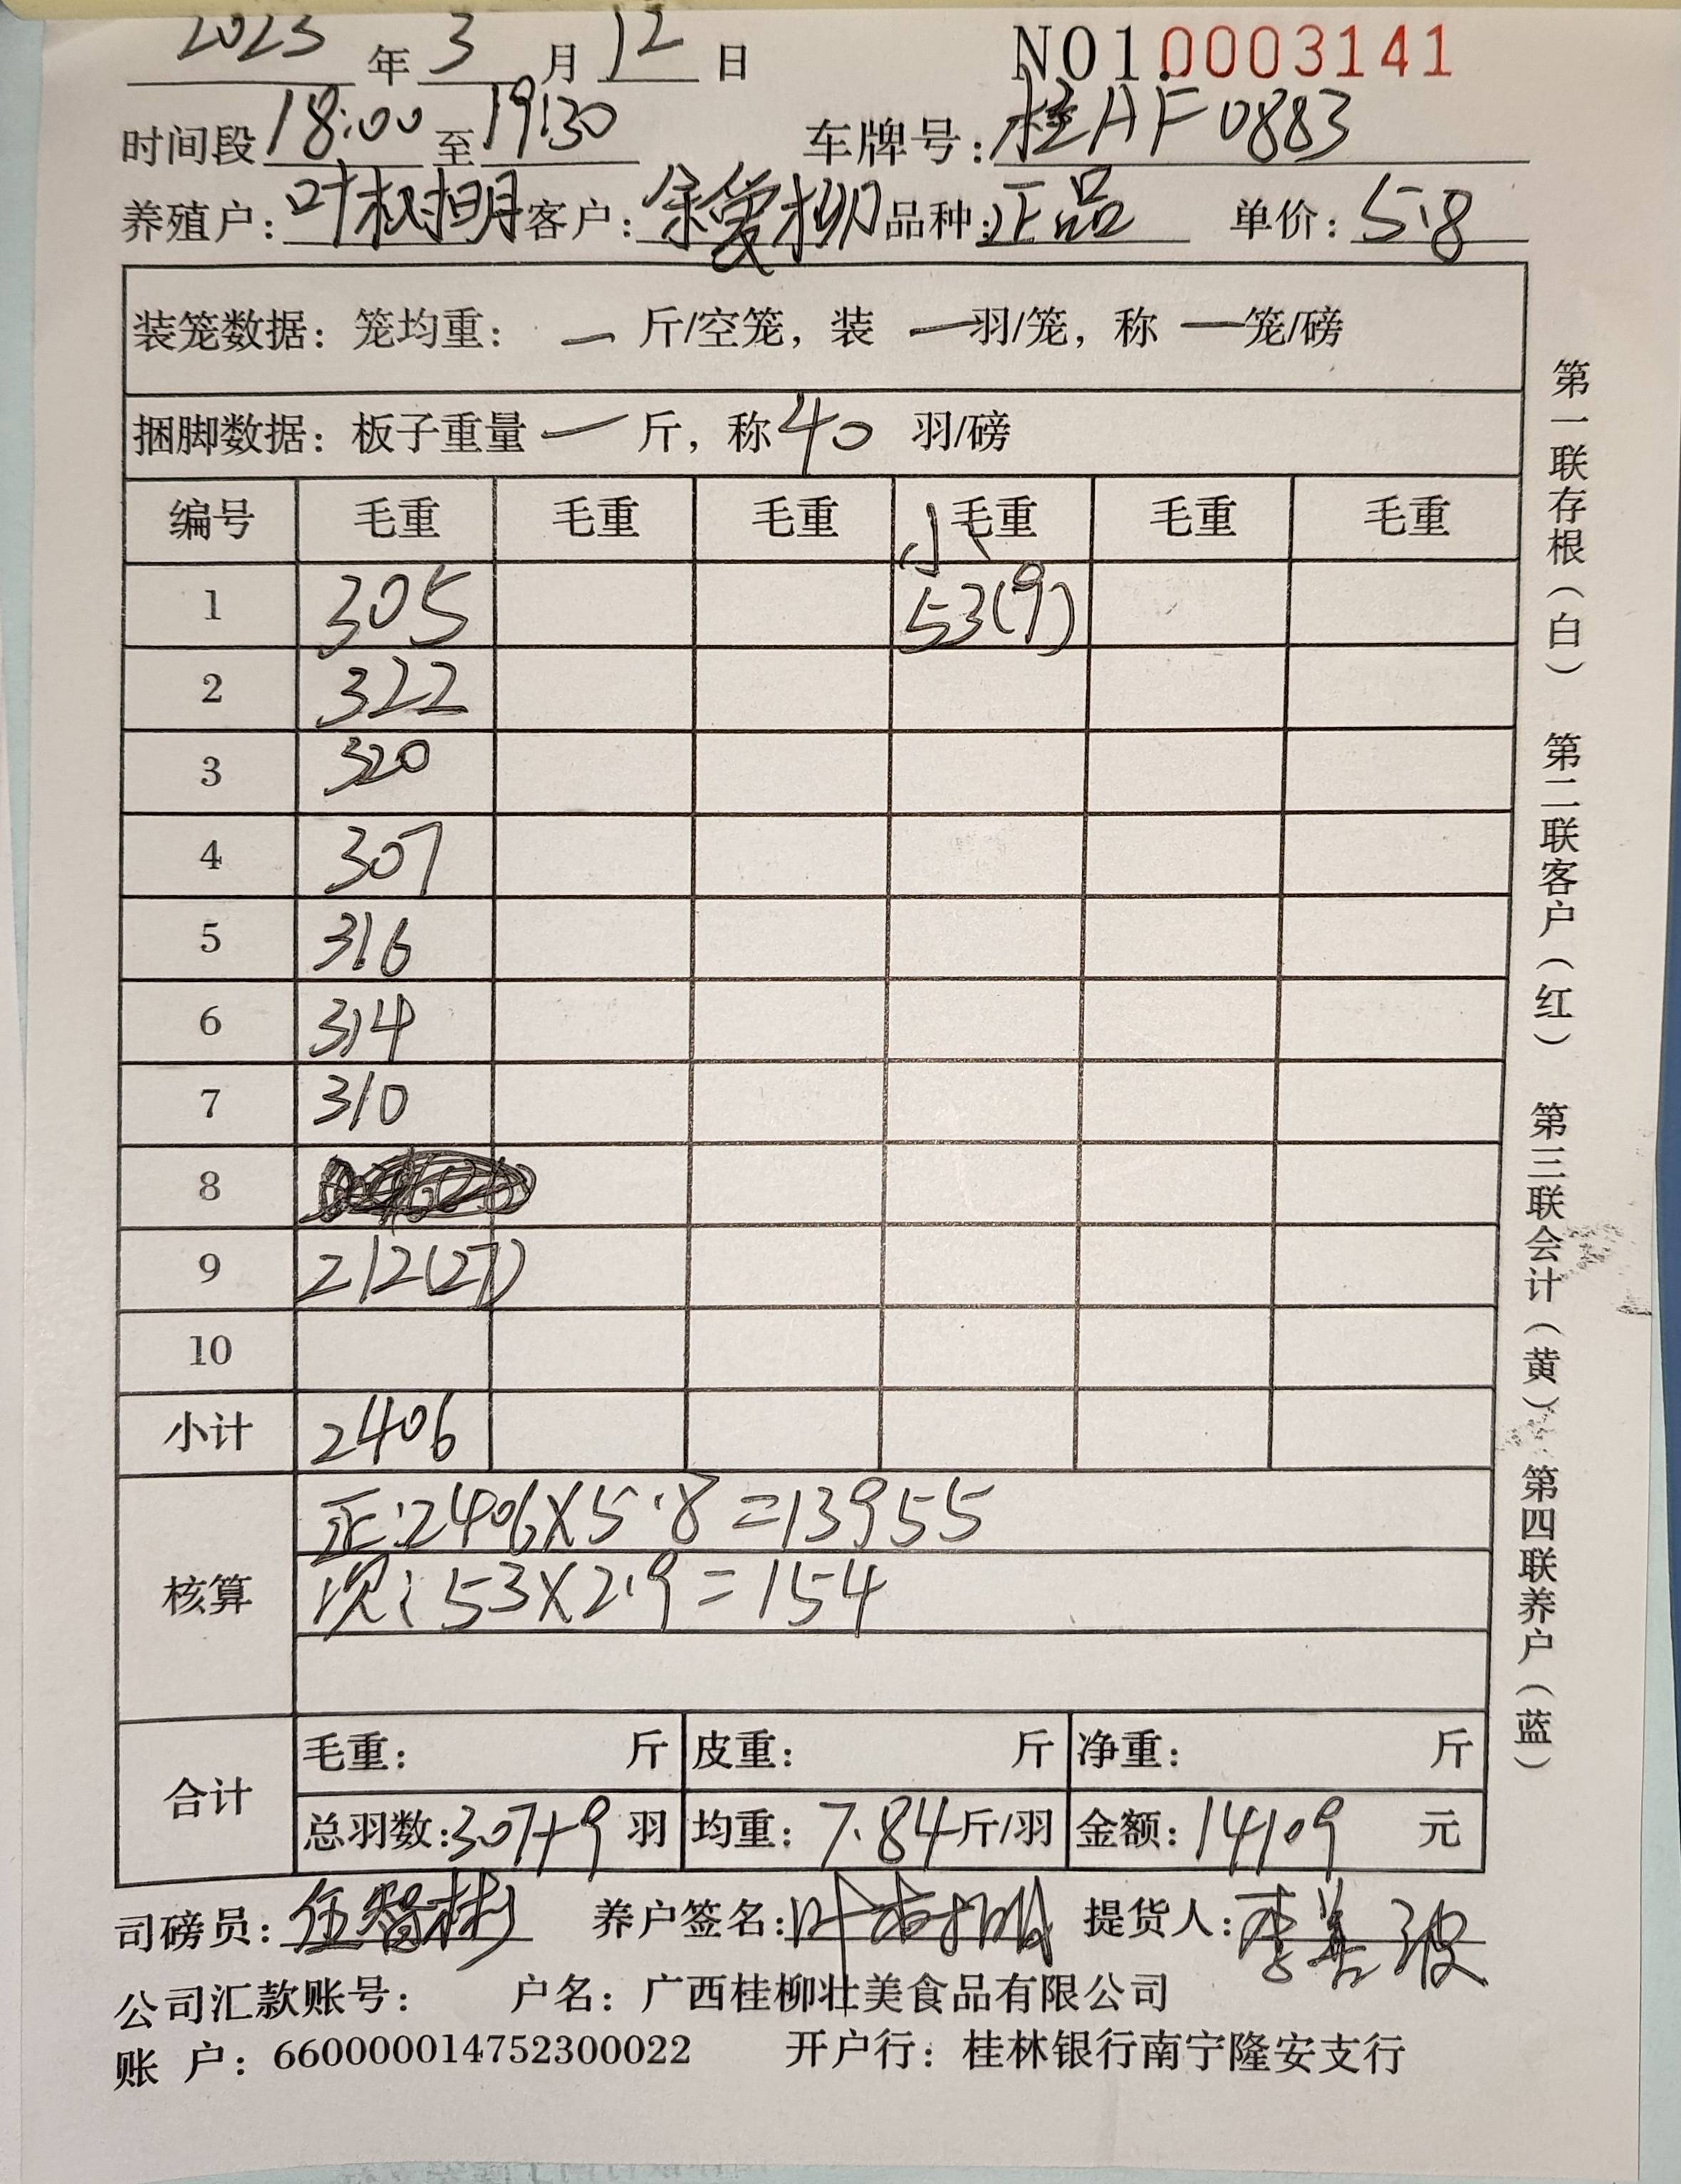 2023 年 3 月 12 日 NO1.0003141
时间段 18:00 至 19:30 车牌号: 桂AF0883
养殖户: 叶 明 客户: 余爱柳 品种: 正品 单价: 5.8
装笼数据: 笼均重: 一 斤/空笼, 装 一 羽/笼, 称 一 笼/磅
捆脚数据: 板子重量 一 斤, 称 40 羽/磅
编号 毛重 毛重 毛重 小 毛重 毛重 毛重
1 305 53(9)
2 322
3 320
4 307
5 316
6 314
7 310
8
9 212(27)
10
小计 2406
核算
正: 2406×5.8=13955
次: 53×2.9=154
合计
毛重: 斤 皮重: 斤 净重: 斤
总羽数: 307+9 羽 均重: 7.84 斤/羽 金额: 14109 元
司磅员: 伍智彬 养户签名: 叶 明 提货人: 李善波
公司汇款账号: 户名: 广西桂柳壮美食品有限公司
账 户: 660000014752300022 开户行: 桂林银行南宁隆安支行
第一联存根(白) 第二联客户(红) 第三联会计(黄) 第四联养户(蓝)